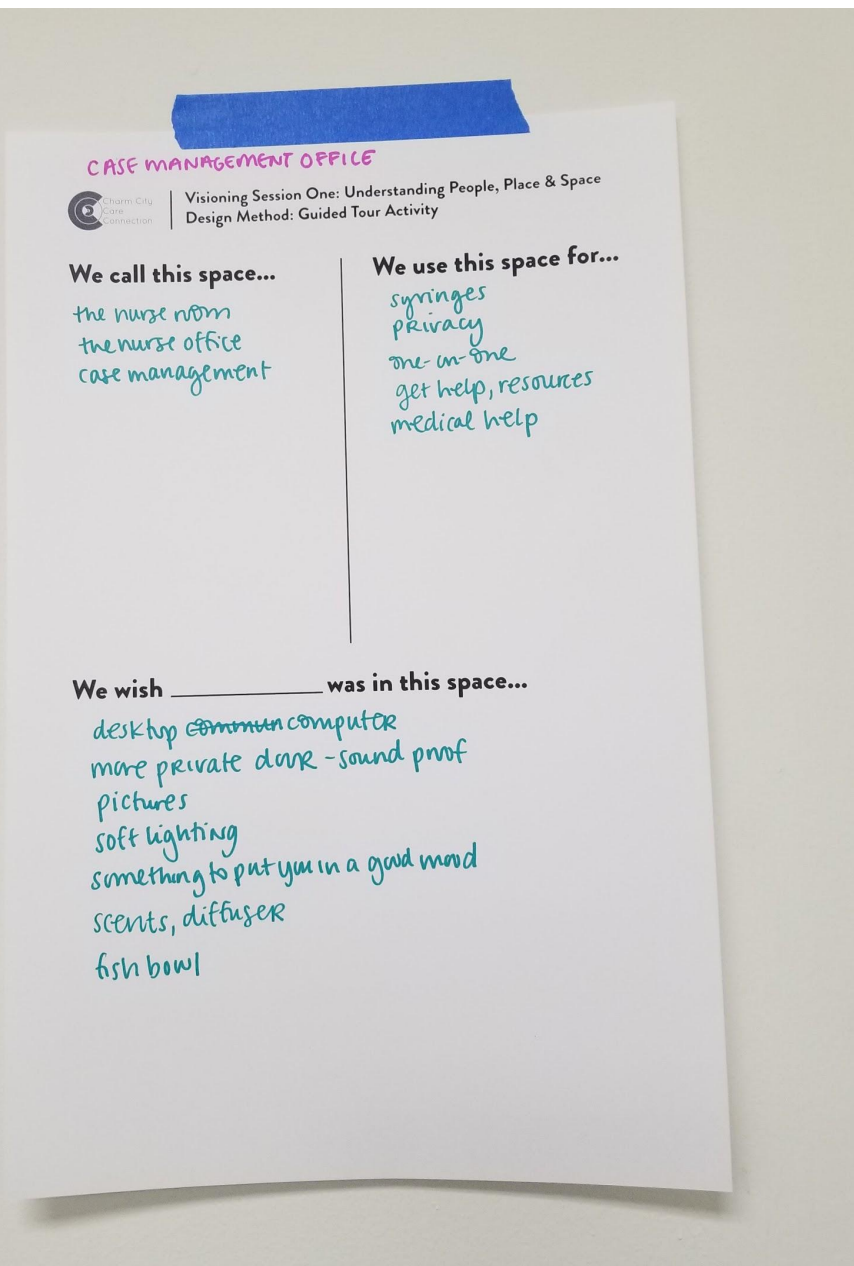 CASE MANAGEMENT OFFICE
Charm City
Care
Connection
Visioning Session One: Understanding People, Place & Space
Design Method: Guided Tour Activity
We call this space...
the nurse room
the nurse office
case management
We use this space for...
syringes
privacy
one-on-one
get help, resources
medical help
We wish ____________ was in this space...
desktop commun computer
more private door - sound proof
pictures
soft lighting
something to put you in a good mood
scents, diffuser
fish bowl